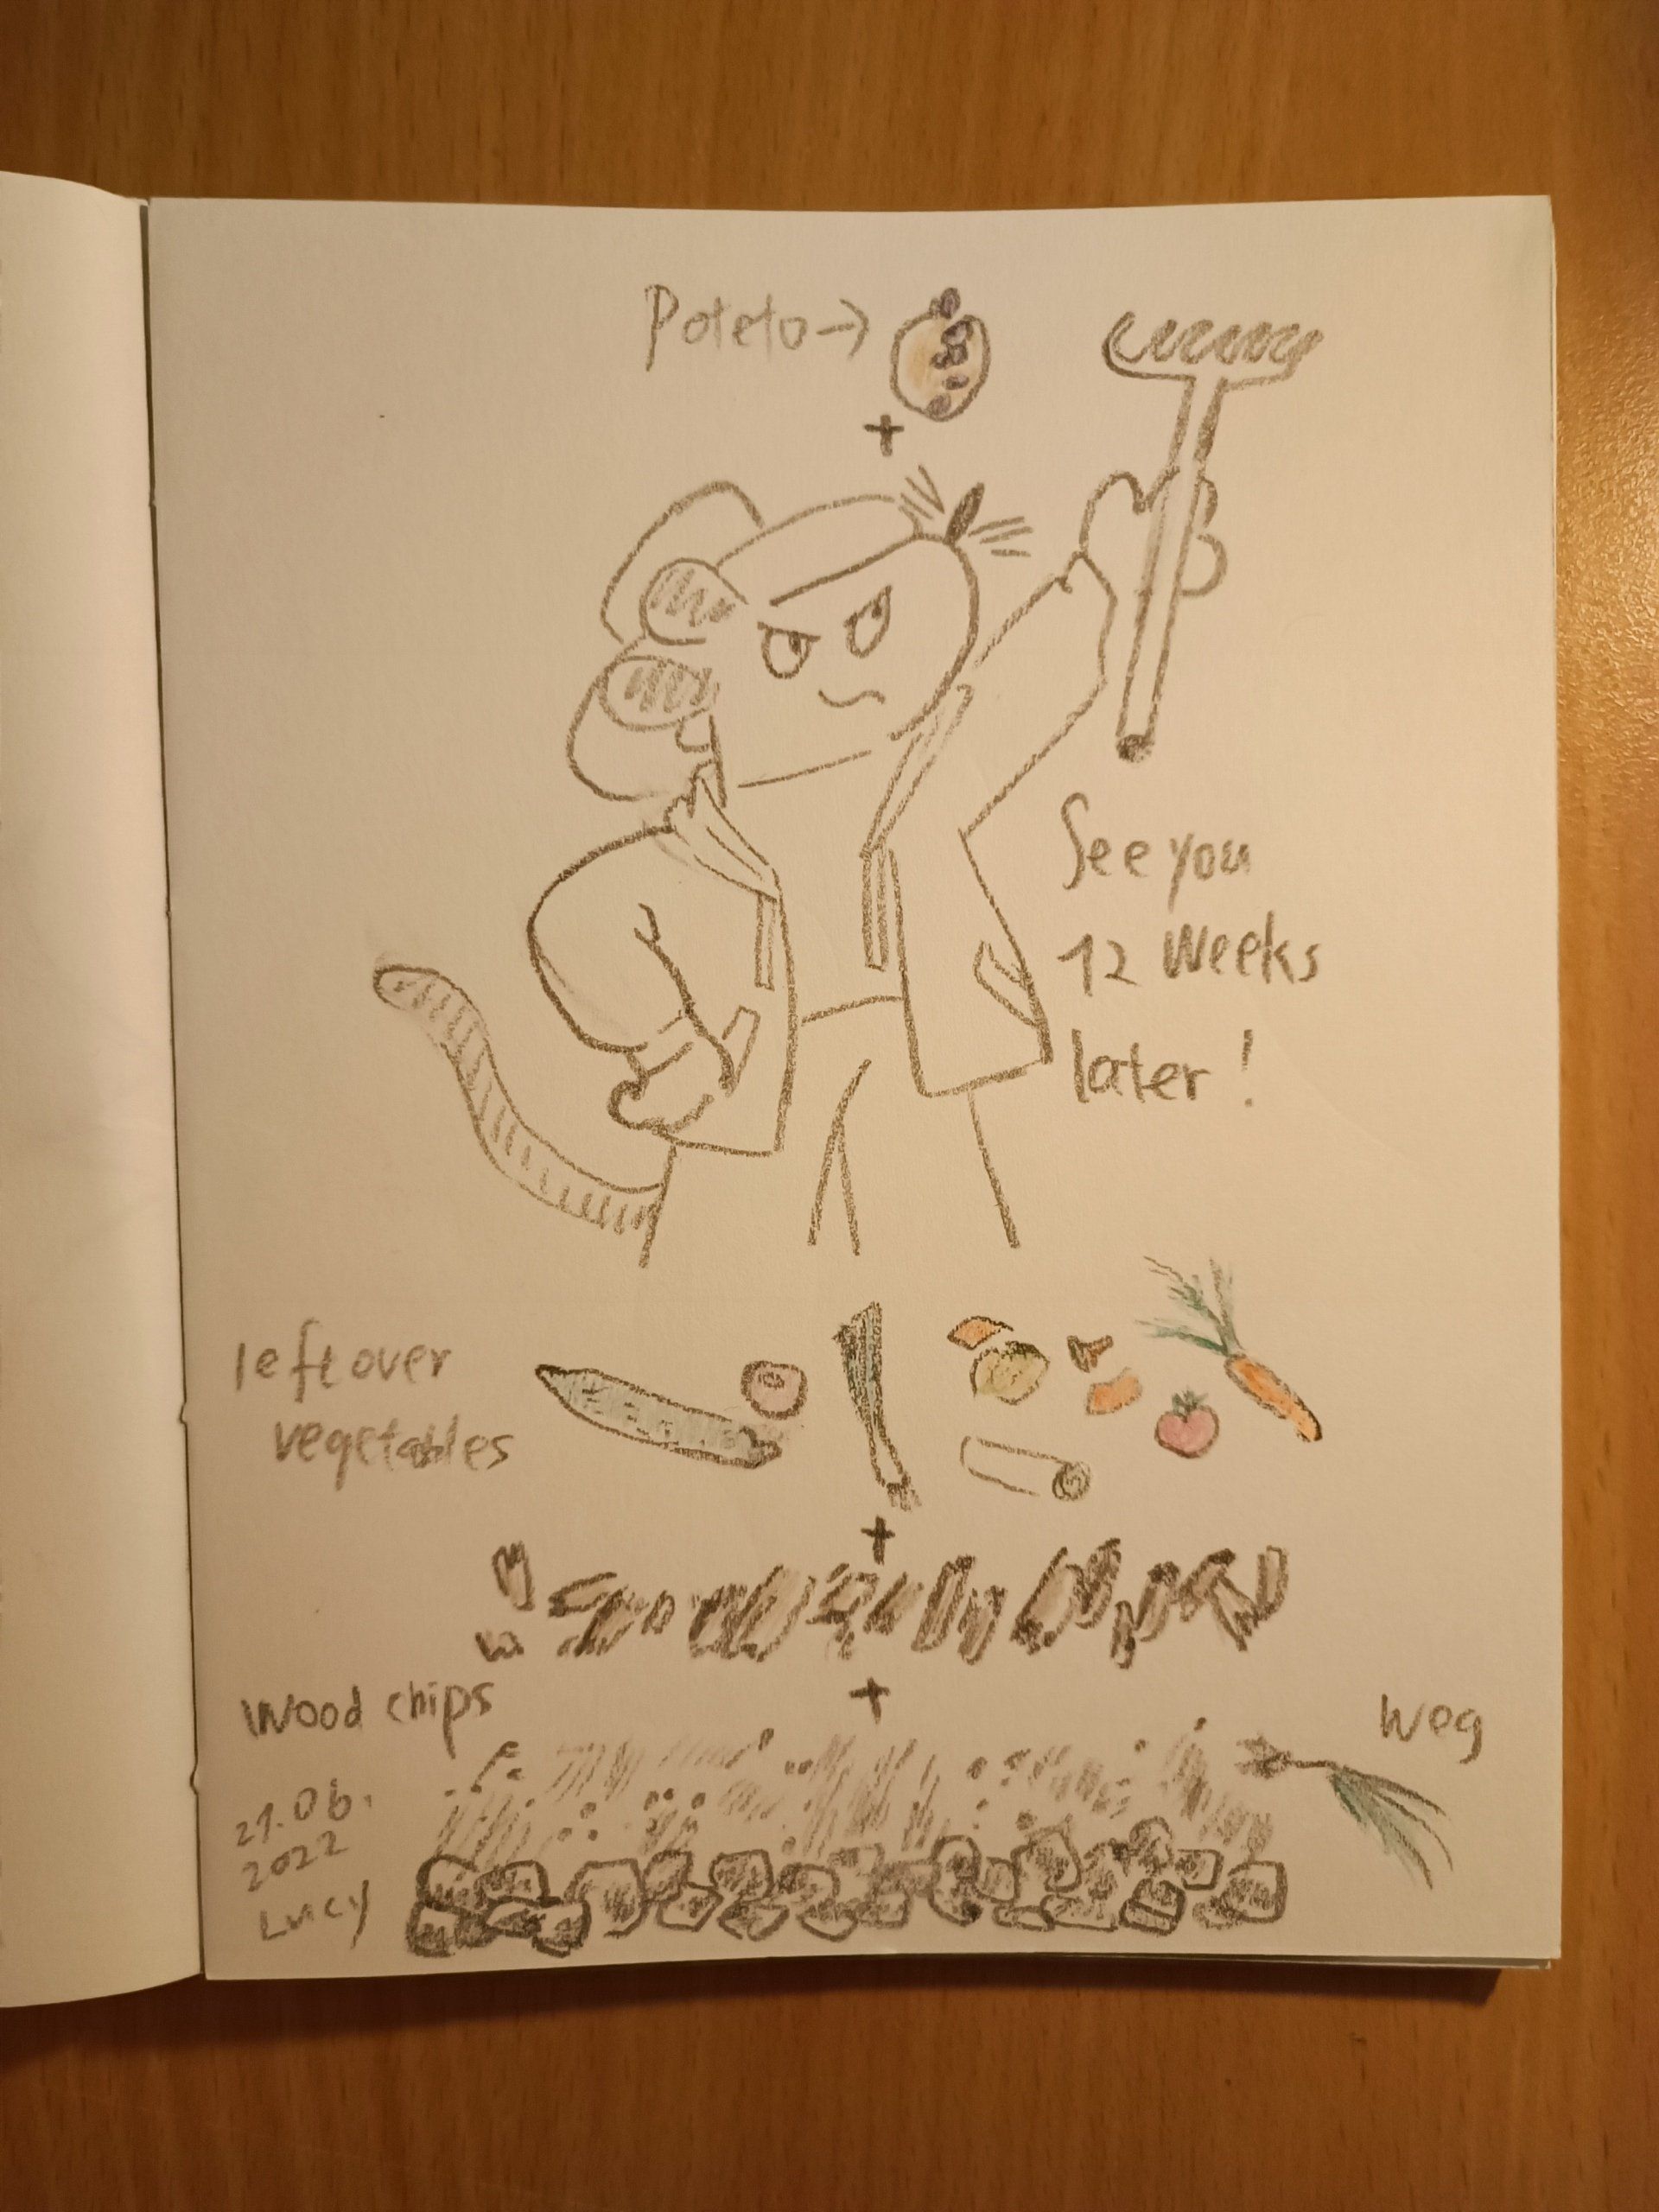 Poteto →
+
See you
12 weeks
later!
leftover
vegetables
+
+
Wood chips
Weg
21.06.
2022
Lucy